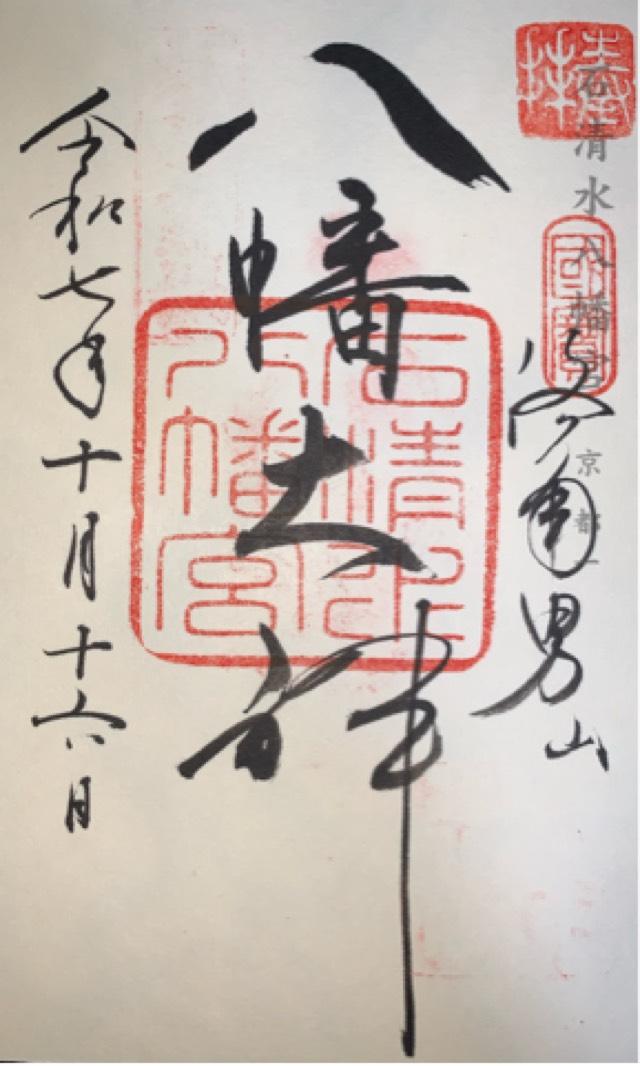 奉拝
石清水八幡宮 京都
國寶
洛南男山
八幡大神
石清水
八幡宮
令和七年十月十六日